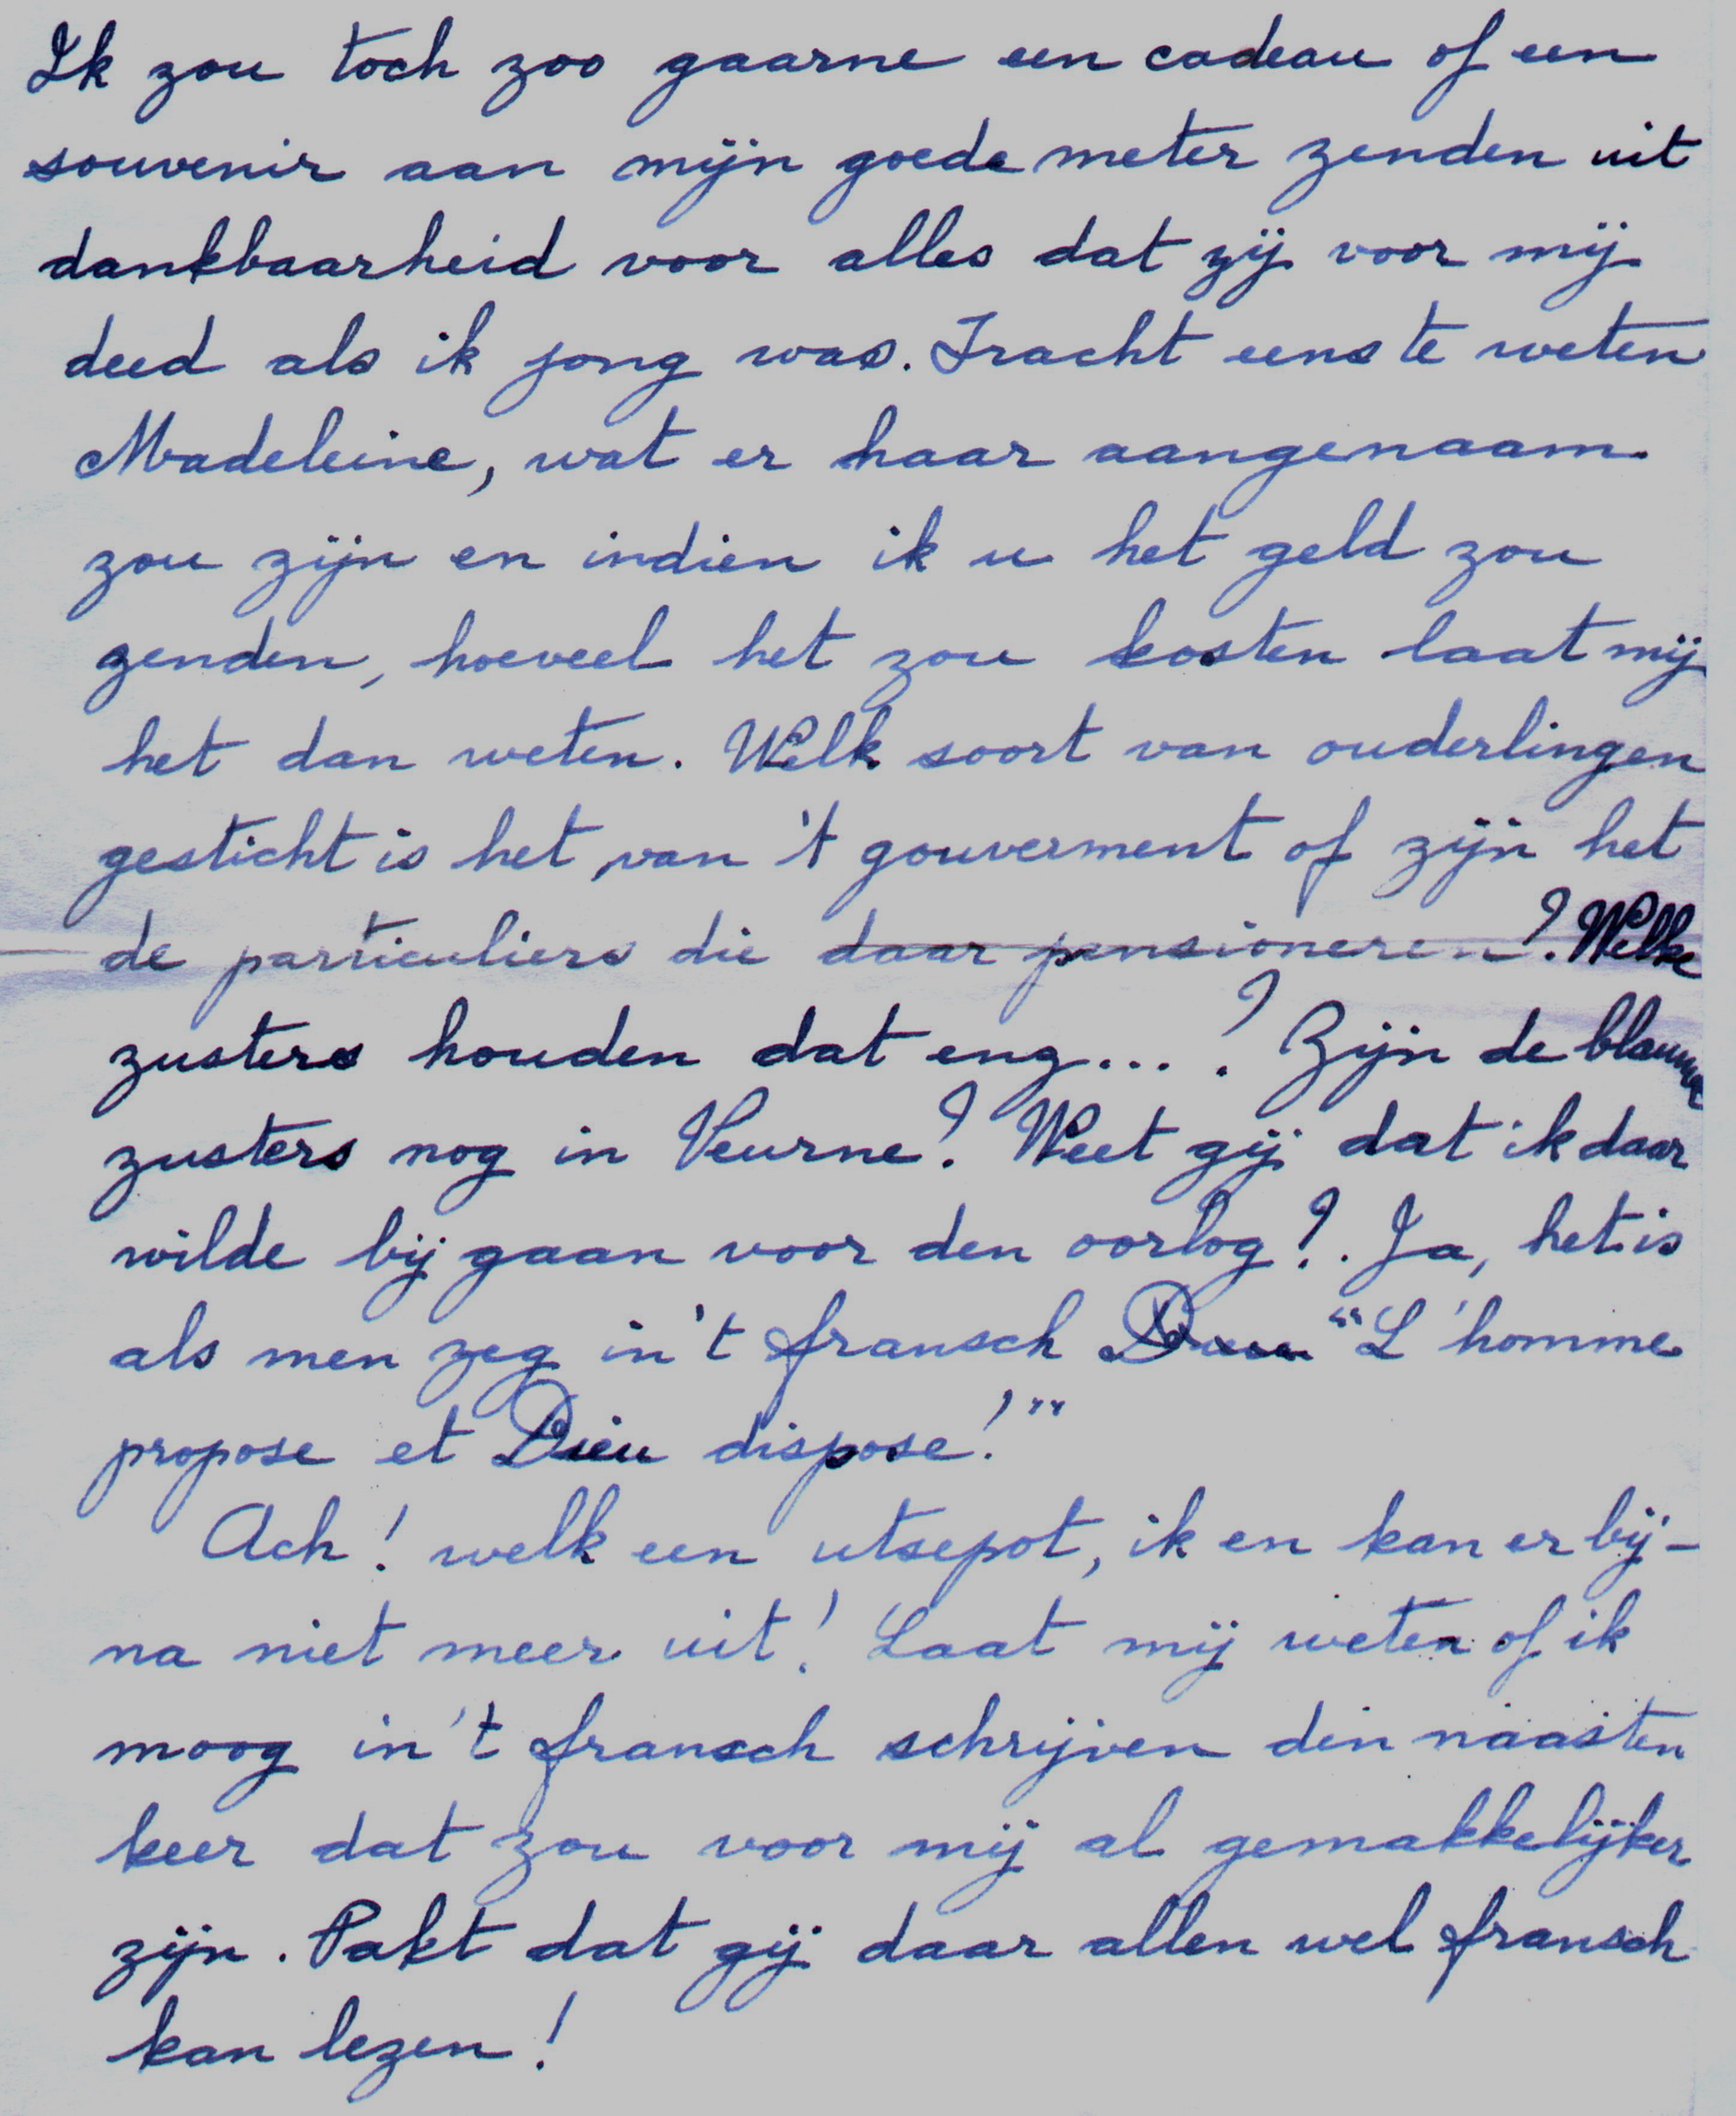 Ik zou toch zoo gaarne een cadeau of een
souvenir aan mijn goede meter zenden uit
dankbaarheid voor alles dat zij voor mij
deed als ik jong was. Tracht eens te weten
Madeleine, wat er haar aangenaam
zou zijn en indien ik u het geld zou
zenden, hoeveel het zou kosten laat mij
het dan weten. Welk soort van ouderlingen
gesticht is het, van 't gouverment of zijn het
de particuliers die daar pensioneren? Welke
zusters houden dat enz...? Zijn de blauwe
zusters nog in Veurne? Weet gij dat ik daar
wilde bij gaan voor den oorlog?. Ja, het is
als men zeg in 't fransch "L'homme
propose et Dieu dispose!"
Ach! welk een utsepot, ik en kan er bij-
na niet meer uit! Laat mij weten of ik
moog in 't fransch schrijven den naasten
keer dat zou voor mij al gemakkelijker
zijn. Pakt dat gij daar allen wel fransch
kan lezen!